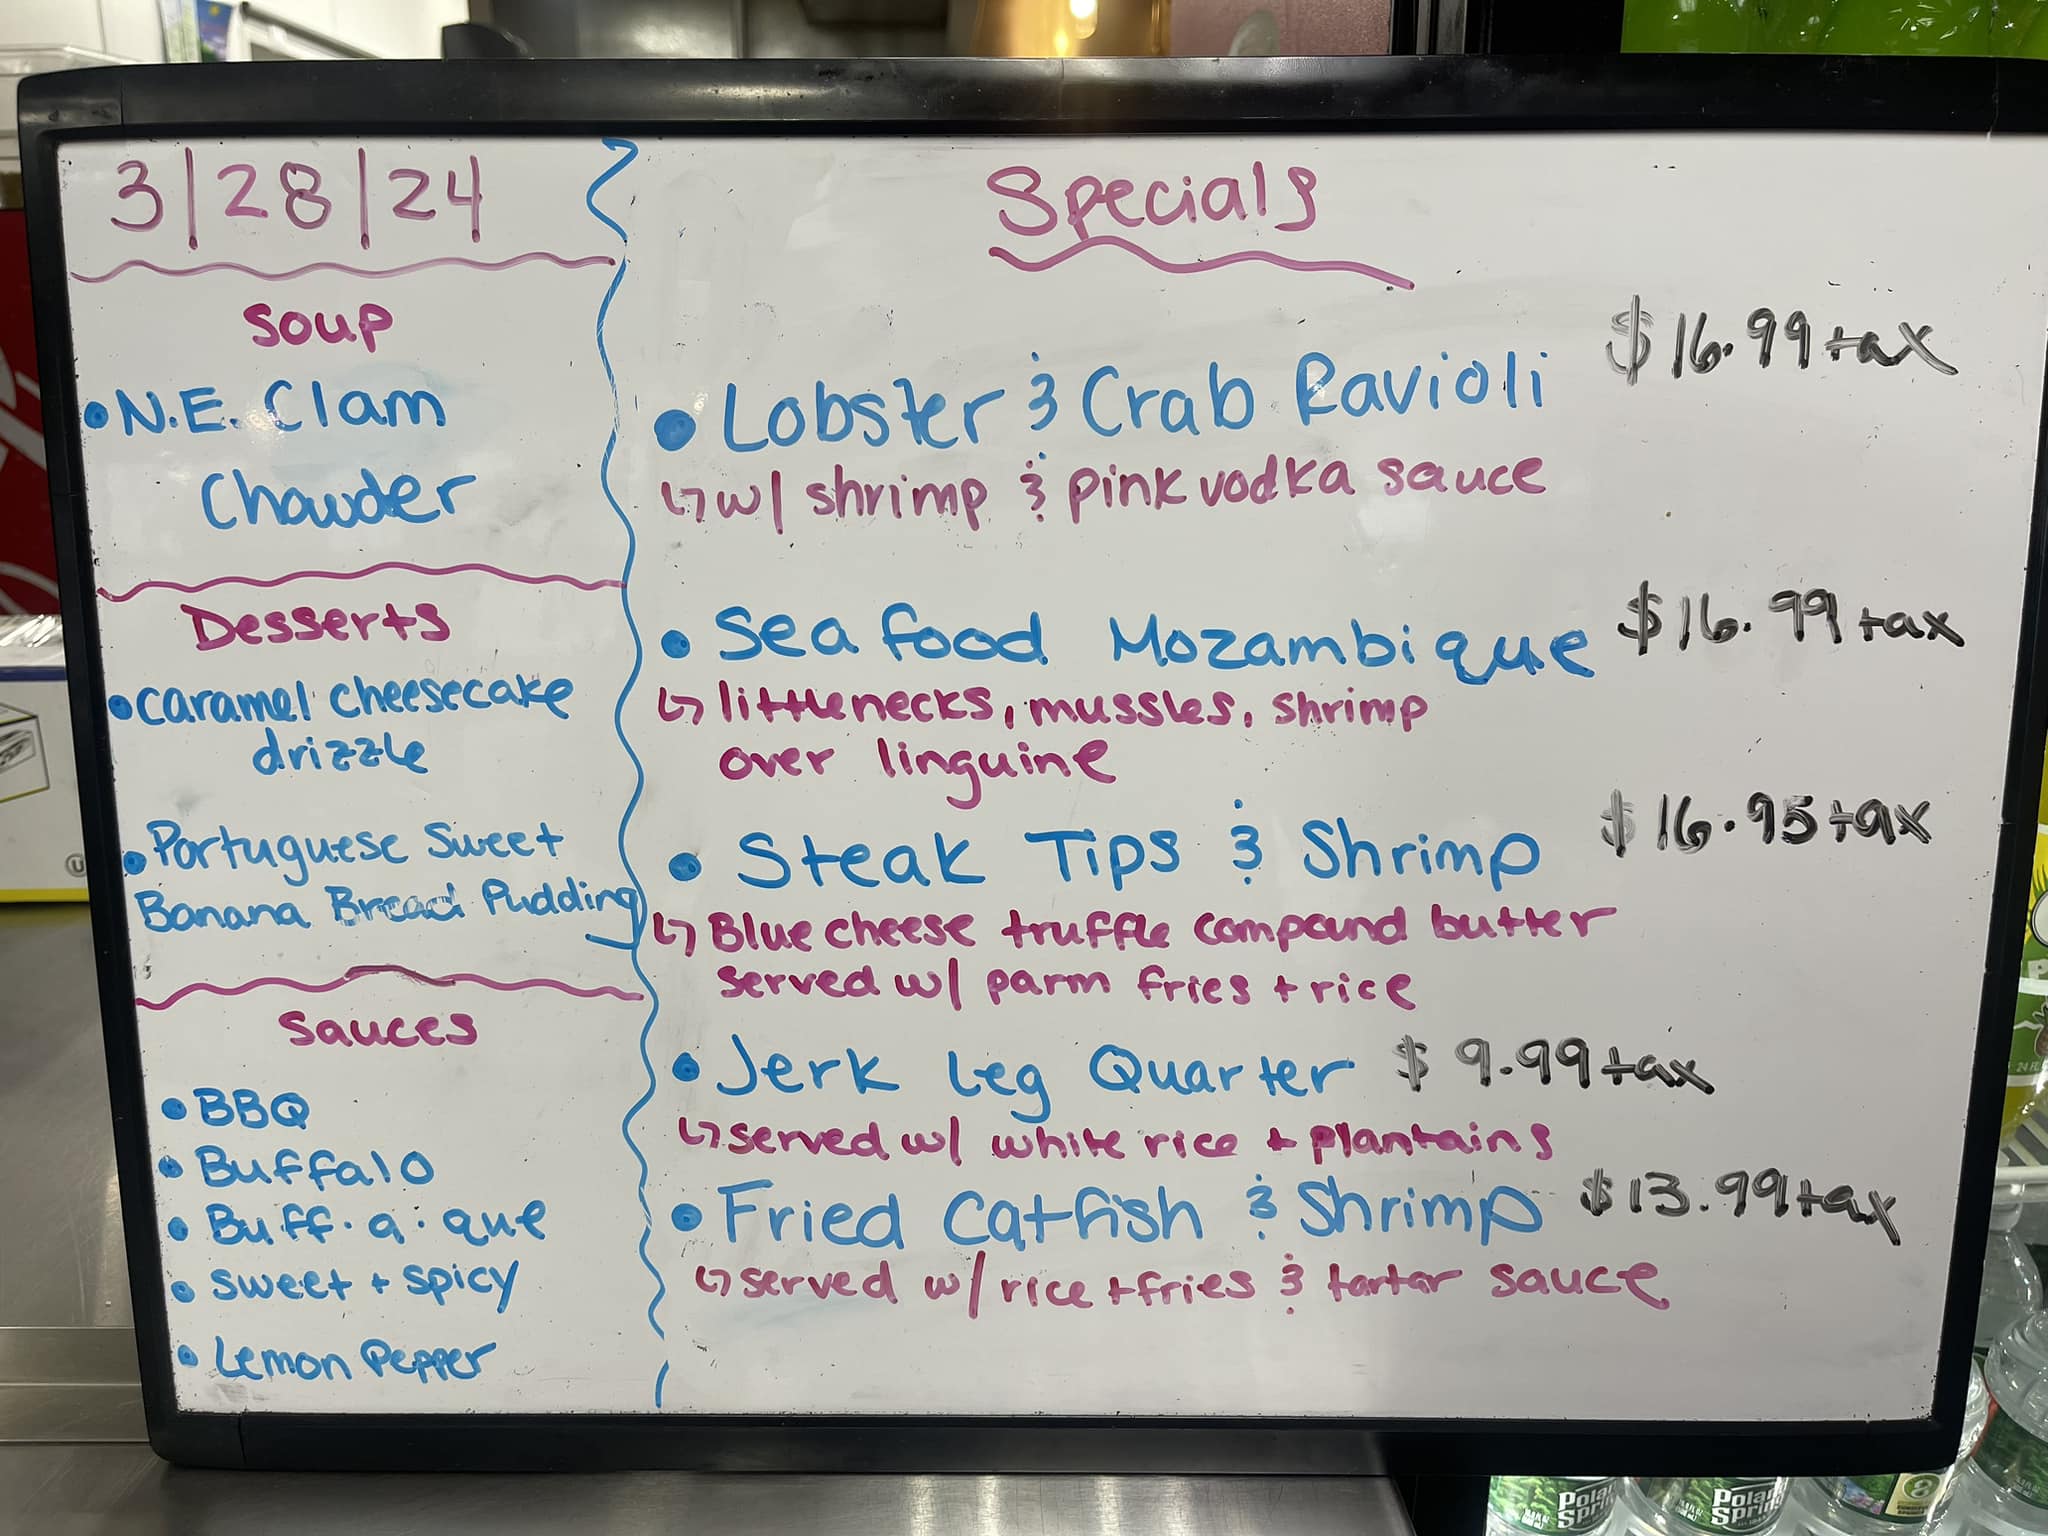 3/28/24
Soup
• N.E. Clam
Chowder
Desserts
• Caramel Cheesecake
drizzle
• Portuguese Sweet
Banana Bread Pudding
Sauces
• BBQ
• Buffalo
• Buff·a·que
• sweet + spicy
• Lemon Pepper
Specials
$16.99+tax
• Lobster & Crab Ravioli
↳ w/ shrimp & pink vodka sauce
• Seafood Mozambique $16.99+tax
↳ littlenecks, mussles, shrimp
over linguine
• Steak Tips & Shrimp $16.95+tax
↳ Blue cheese truffle compound butter
served w/ parm fries + rice
• Jerk Leg Quarter $9.99+tax
↳ served w/ white rice + plantains
• Fried Catfish & Shrimp $13.99+tax
↳ served w/ rice + fries & tartar sauce
Polar
Spring
Poland
Spring